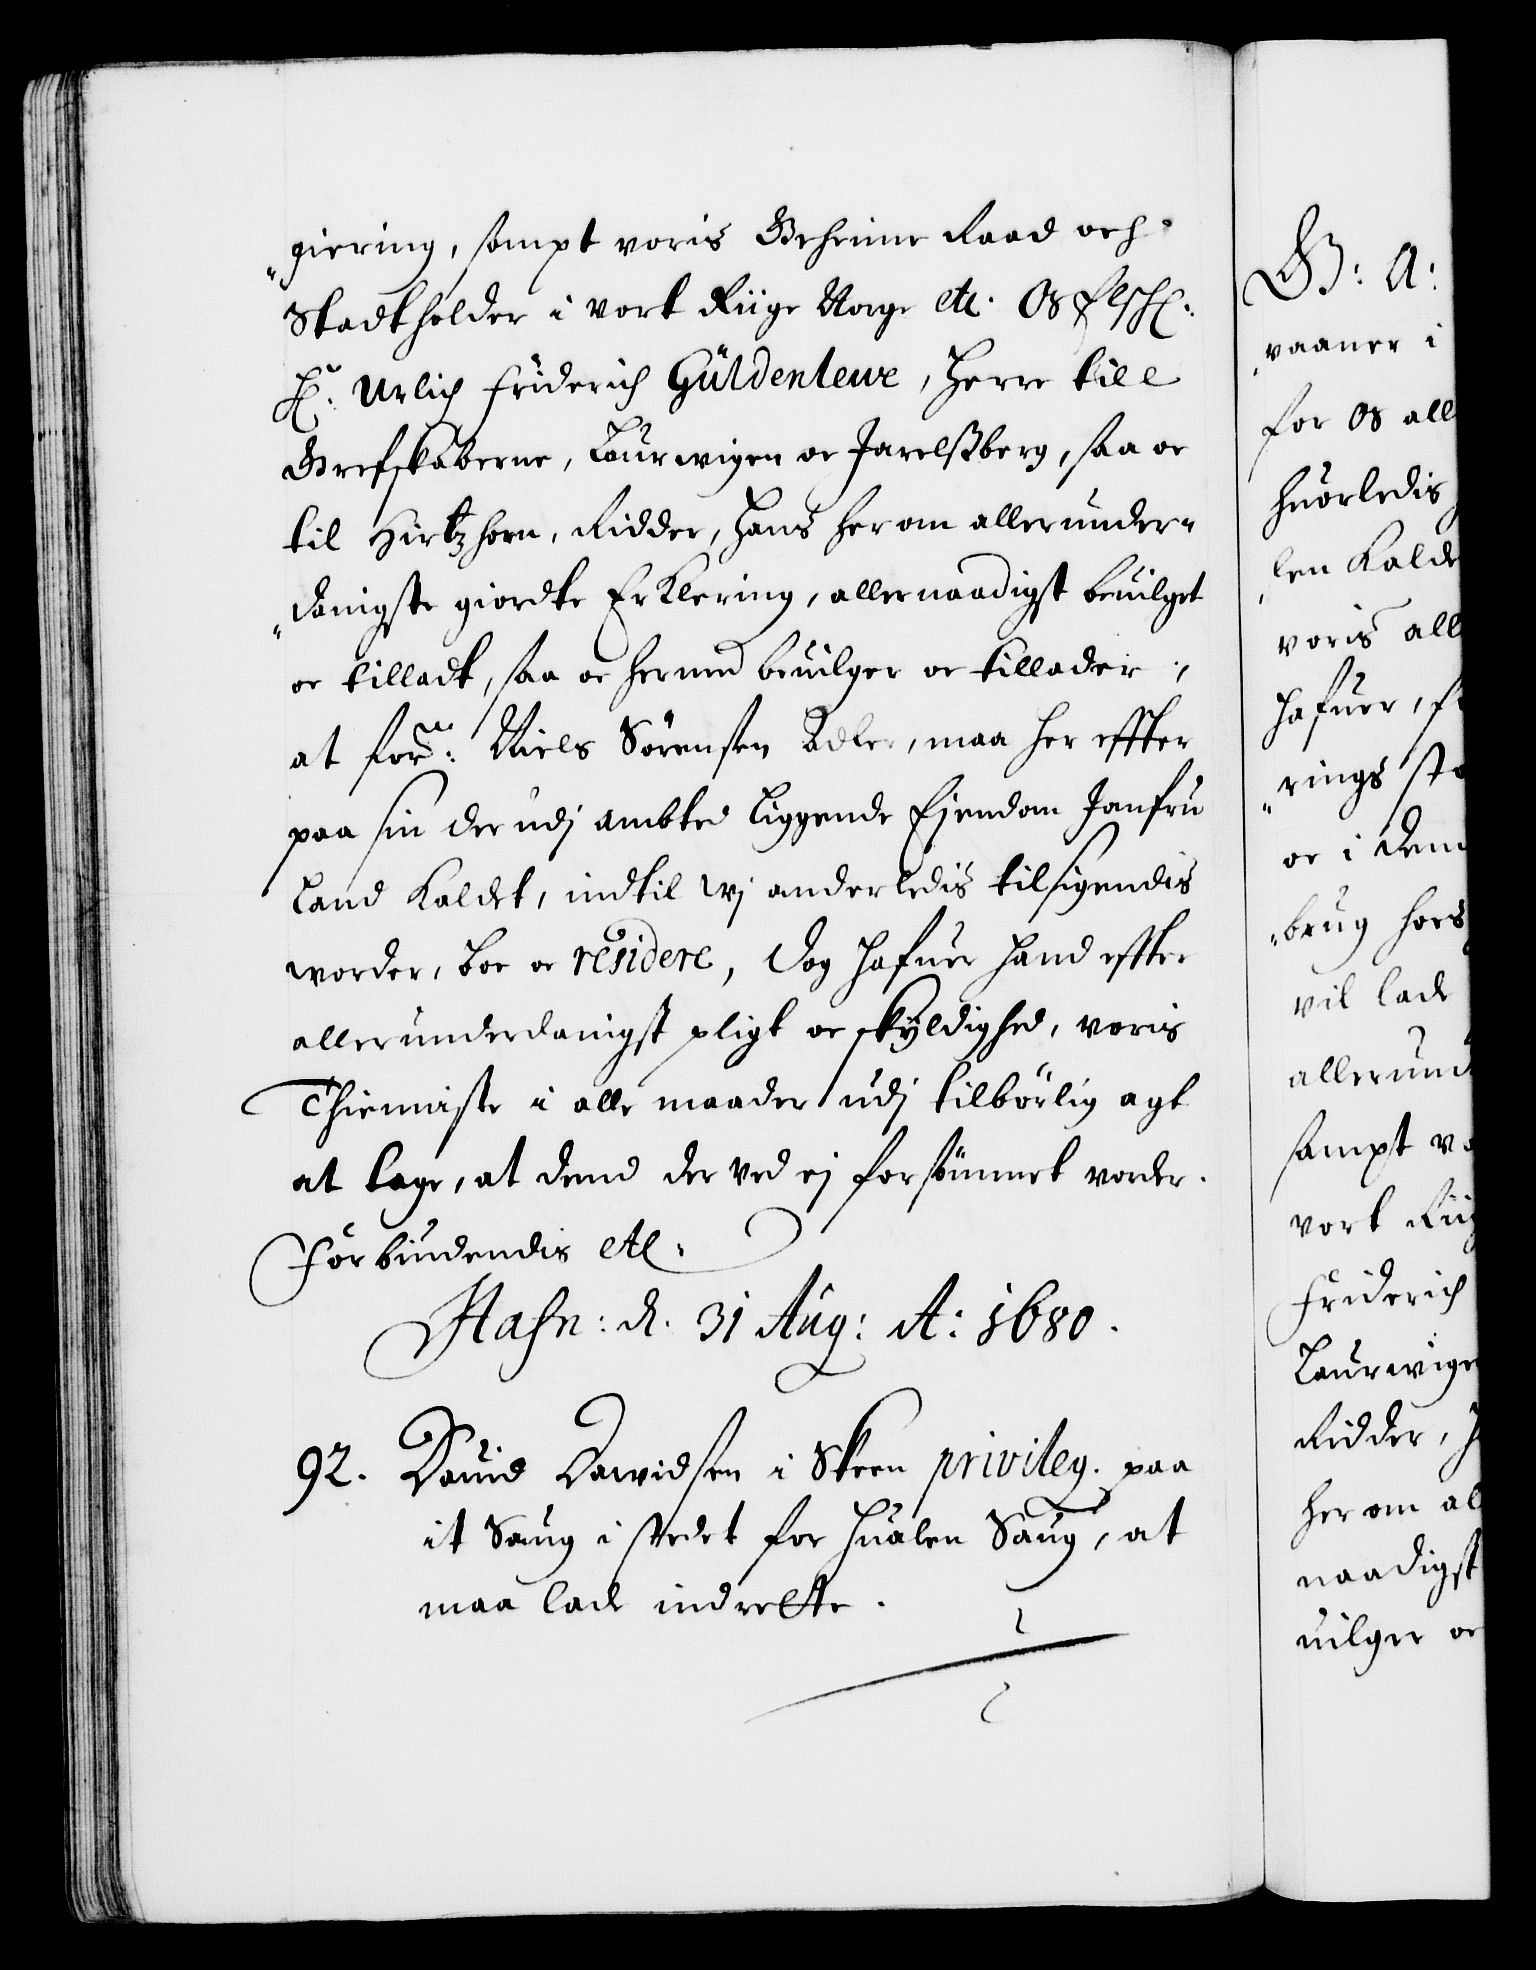 "giering, sampt voris Geheime Raad och
Stadtholder i vort Riige Norge etc. Os Elschl:
Hr. Urlich Friderich Güldenleue, Herre till
Grefskaberne, Laurwigen oc Jarelsberg, saa oc
til Hirtzhorn, Ridder, Hans her om allerunder-
"danigste giordte Erklering, allernaadigst beuilget
oc tilladt, saa oc hermed beuilger oc tillader,
at forne: Niels Sörensen Adler, maa her effter
paa sin der udj ambted liggende Ejendom Jomfru
Land kaldet, indtil wj anderledis tilsigendis
worder, boe oc residere, dog hafuer hand effter
allerunderdanigst pligt oc skÿldighed, voris
Thienniste i alle maader udj tilbörlig agt
at tage, at dend der ved ej forsömmet vorder.
Forbiudendis etc.
Hafn: d. 31 Aug: A: 1680.
92. Dauid Dawidsen i Skeen privileg. paa
it Saug i stedet for Hualen Saug, at
maa lade indrette.
G: A:
vaaner i
for Os all
huorledis
len Kalde
voris all
hafuer,
"rings
oc i
"brug
vil lade
allerund
sampt
vort Riig
Friderich
Laurwige
Ridder,
her om al
naadigst
uilger oc